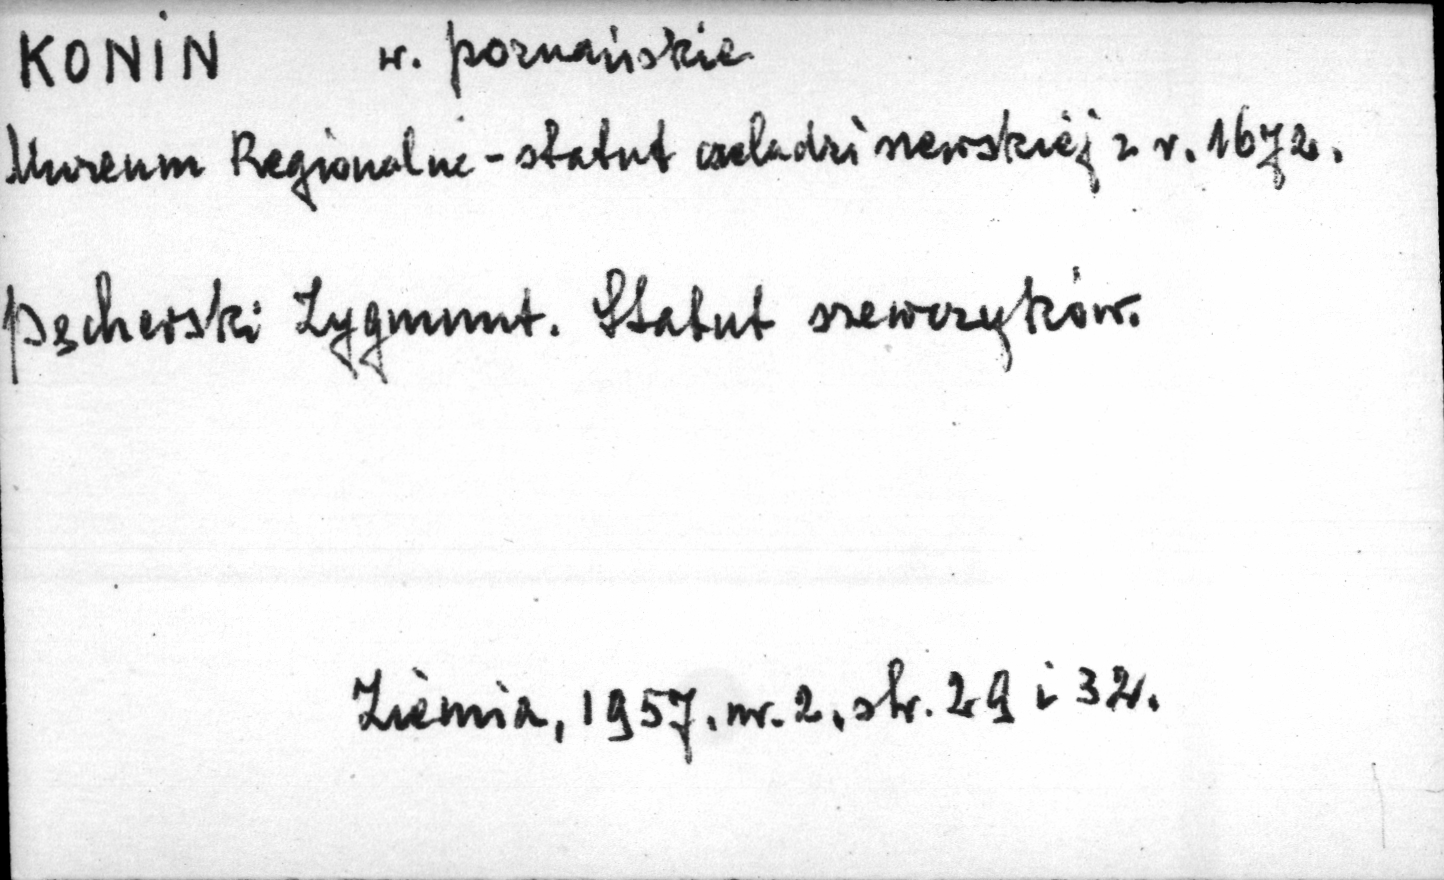 KONIN w. poznańskie
Muzeum Regionalne - statut czeladzi szewskiej z r. 1672.
Pęcherski Zygmunt. Statut szewczyków.
Ziemia, 1957. nr. 2. str. 29 i 32.